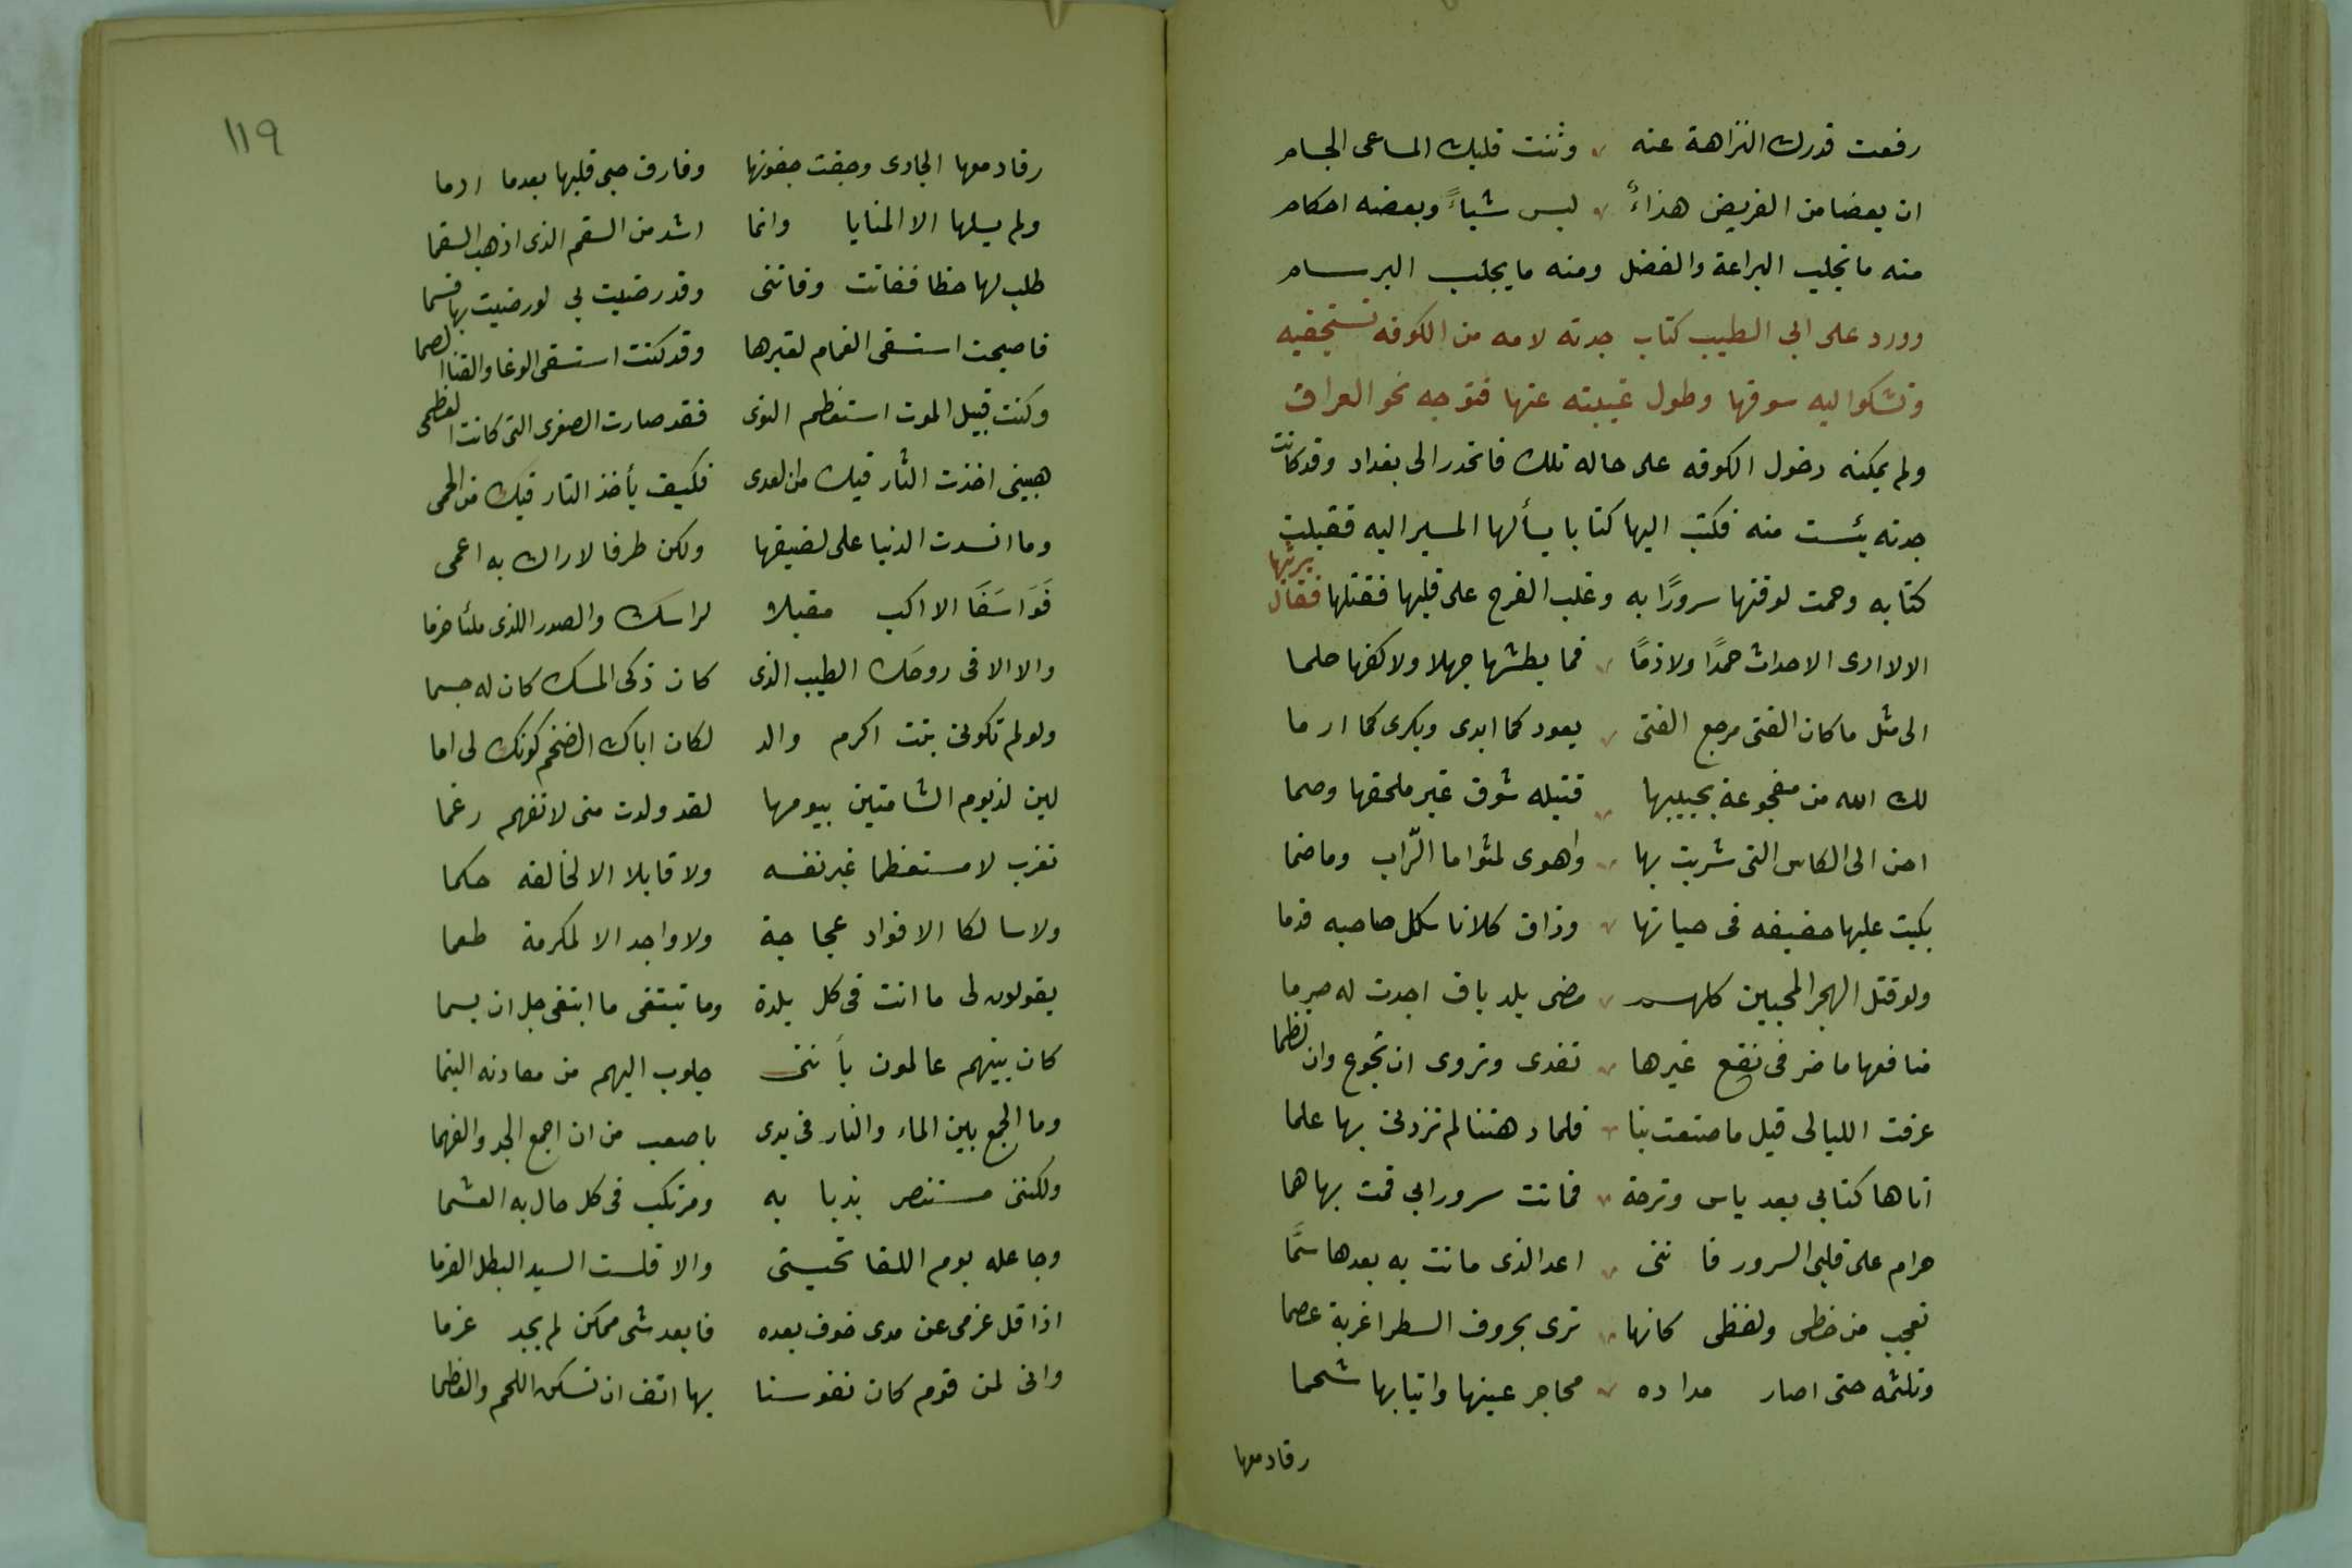 رفعت قدرك النزاهة عنه وثنت قلبك المساعى الجسام
ان بعضا من القريض هذاءٌ ليس شياءً وبعضه احكام
منه ما يجلب البراعة والفضل ومنه ما يجلب البرسام
وورد على ابي الطيب كتاب جدته لامه من الكوفه تستجفيه
وتشكوا اليه شوقها وطول غيبته عنها فتوجه نحو العراق
ولم يمكنه دخول الكوفه على حاله تلك فانحدر الى بغداد وقد كانت
جدته يئست منه فكتب اليها كتابا يسألها المسير اليه فقبلت
كتابه وحمت لوقتها سرورًا به وغلب الفرح على قلبها فقتلها فقال يرثيها
الا لا ارى الاحداث حمدًا ولا ذمًا فما بطشها جهلا ولا كفها حلما
الى مثل ما كان الفتى مرجع الفتى يعود كما ابدى ويكرى كما ارما
لك الله من مفجوعة بحبيبها قتيله شوق غير ملحقها وصما
احن الى الكاس التى شربت بها واهوى لمثواها التّراب وما ضما
بكيت عليها خيفه فى حياتها وذاق كلانا ثكل صاحبه قدما
ولو قتل الهجر المحبين كلهم مضى بلد باق اجدت له صرما
منافعها ما ضر فى نفع غيرها تغدى وتروى ان تجوع وان تظما
عرفت الليالى قبل ما صنعت بنا فلما دهتنا لم تزدنى بها علما
اتاها كتابي بعد ياس وترحة فماتت سرورا بي فمت بها هما
حرام على قلبى السرور فاننى اعد الذى ماتت به بعدها سمًا
تعجب من خطى ولفظى كانها ترى بحروف السطر اغربة عصما
وتلثمه حتى اصار مداده محاجر عينها وانيابها سحما
رقا دمعها
١١٩
رقا دمعها الجارى وجفت جفونها وفارق حبى قلبها بعدما ادما
ولم يسلها الا المنايا وانما اشد من السقم الذى اذهب السقما
طلب لها حظا ففاتت وفاتنى وقد رضيت بي لو رضيت بها قسما
فاصبحت استسقى الغمام لقبرها وقد كنت استسقى الوغا والقنا الصما
وكنت قبيل الموت استعظم النوى فقد صارت الصغرى التى كانت العظمى
هبينى اخذت الثار فيك من العدى فكيف يأخذ الثار فيك من الحمى
وما انسدت الدنيا على لضيقها ولكن طرفا لا اراك به اعمى
فَوَاسَفَا الا اكب مقبلا لراسك والصدر اللذى ملئا حزما
والا الاقى روحك الطيب الذى كان ذكى المسك كان له جسما
ولو لم تكونى بنت اكرم والد لكان اباك الضخم كونك لى اما
لين لذ يوم الشامتين بيومها لقد ولدت منى لانفهم رغما
تغرب لا مستعظما غير نفسه ولا قابلا الا لخالقه حكما
ولا سالكا الا فواد عجاجة ولا واجد الا لمكرمة طعما
يقولون لى ما انت فى كل بلدة وما تبتغى ما ابتغى جل ان يسما
كان بينهم عالمون بأننى جلوب اليهم من معادنه اليتما
وما الجمع بين الماء والنار فى يدى باصعب من ان اجمع الجد والفهما
ولكننى مستنصر بذبابه ومرتكب فى كل حال به الغشما
وجاعله يوم اللقا تحيتى والا فلست السيد البطل القرما
اذا قل عزمى عن مدى خوف بعده فابعد شى ممكن لم يجد عزما
وانى لمن قوم كان نفوسنا بها انف ان تسكن اللحم والعظما